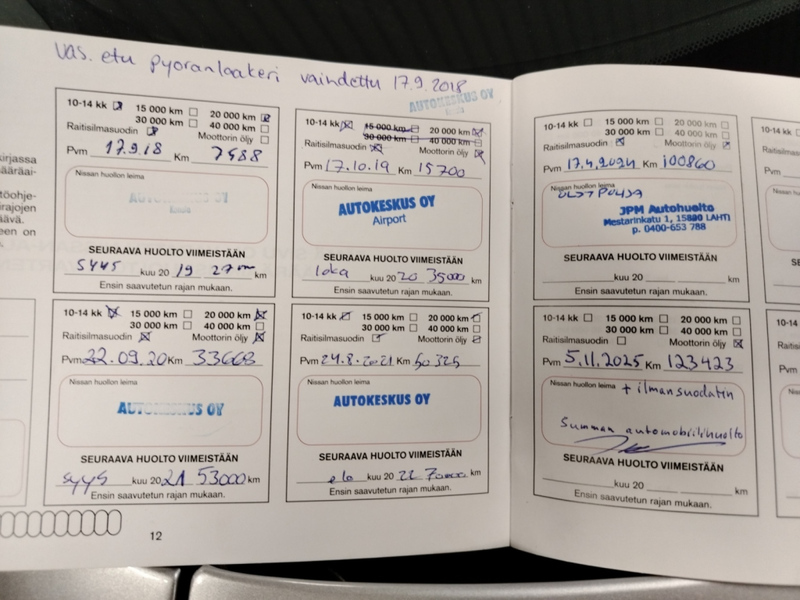 vas. etu pyoranlaakeri vaindettu 17.9.2018
AUTOKESKUS OY
10-14 kk 15 000 km 20 000 km
30 000 km 40 000 km
Raitisilmasuodin Moottorin öljy
Pvm 17.9.18 Km 7988
Nissan huollon leima
SEURAAVA HUOLTO VIIMEISTÄÄN
SYYS kuu 20 19 km
Ensin saavutetun rajan mukaan.
10-14 kk 15 000 km 20 000 km
30 000 km 40 000 km
Raitisilmasuodin Moottorin öljy
Pvm 17.10.19 Km 15700
Nissan huollon leima
AUTOKESKUS OY
Airport
SEURAAVA HUOLTO VIIMEISTÄÄN
loka kuu 20 20 35000 km
Ensin saavutetun rajan mukaan.
10-14 kk 15 000 km 20 000 km
30 000 km 40 000 km
Raitisilmasuodin Moottorin öljy
Pvm 22.09.20 Km 33668
Nissan huollon leima
AUTOKESKUS OY
SEURAAVA HUOLTO VIIMEISTÄÄN
syys kuu 20 21 53000 km
Ensin saavutetun rajan mukaan.
10-14 kk 15 000 km 20 000 km
30 000 km 40 000 km
Raitisilmasuodin Moottorin öljy
Pvm 24.8.2021 Km 50325
Nissan huollon leima
AUTOKESKUS OY
SEURAAVA HUOLTO VIIMEISTÄÄN
elo kuu 20 22 70000 km
Ensin saavutetun rajan mukaan.
12
10-14 kk 15 000 km 20 000 km
30 000 km 40 000 km
Raitisilmasuodin Moottorin öljy
Pvm 17.4.2024 Km 100860
Nissan huollon leima
JPM Autohuolto
Mestarinkatu 1, 15800 LAHTI
p. 0400-653 788
SEURAAVA HUOLTO VIIMEISTÄÄN
kuu 20 km
Ensin saavutetun rajan mukaan.
10-14 kk 15 000 km 20 000 km
30 000 km 40 000 km
Raitisilmasuodin Moottorin öljy
Pvm 5.11.2025 Km 123423
Nissan huollon leima + ilmansuodatin
Summan automobiilihuolto
SEURAAVA HUOLTO VIIMEISTÄÄN
kuu 20 km
Ensin saavutetun rajan mukaan.